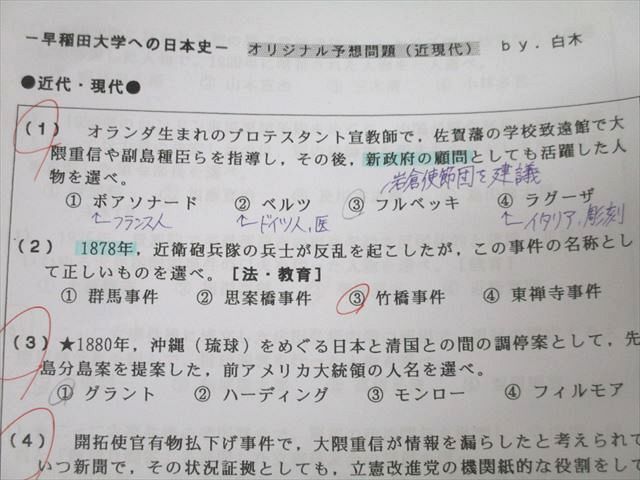 －早稲田大学への日本史－　オリジナル予想問題（近現代）　ｂｙ．白木
●近代・現代●
（１）　オランダ生まれのプロテスタント宣教師で，佐賀藩の学校致遠館で大
隈重信や副島種臣らを指導し，その後，新政府の顧問としても活躍した人
物を選べ。
岩倉使節団を建議
① ボアソナード　② ベルツ　③ フルベッキ　④ ラグーザ
←フランス人　←ドイツ人，医　←イタリア，彫刻
（２）　1878年，近衛砲兵隊の兵士が反乱を起こしたが，この事件の名称とし
て正しいものを選べ。［法・教育］
① 群馬事件　② 思案橋事件　③ 竹橋事件　④ 東禅寺事件
（３）★1880年，沖縄（琉球）をめぐる日本と清国との間の調停案として，先
島分島案を提案した，前アメリカ大統領の人名を選べ。
① グラント　② ハーディング　③ モンロー　④ フィルモア
（４）　開拓使官有物払下げ事件で，大隈重信が情報を漏らしたと考えられて
いつ新聞で，その状況証拠としても，立憲改進党の機関紙的な役割をして